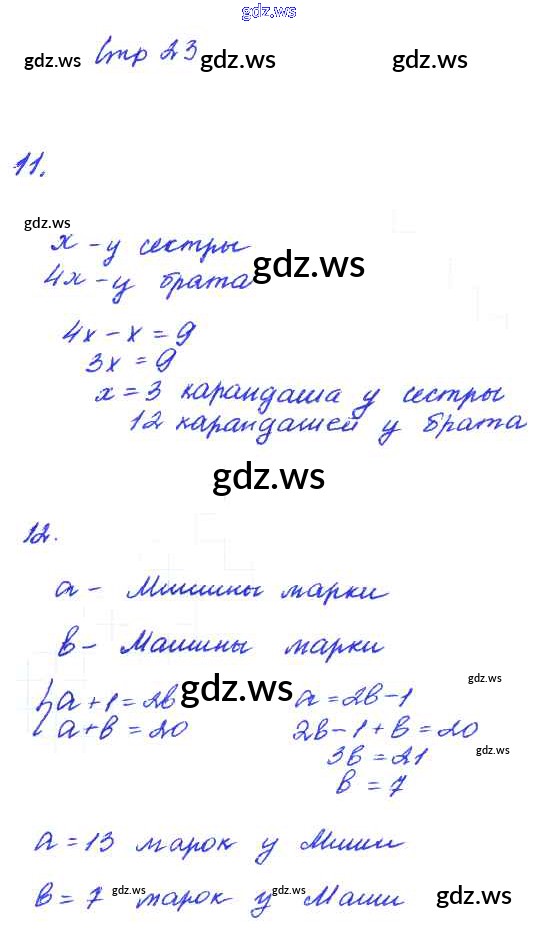 gdz.ws
gdz.ws Стр 23 gdz.ws gdz.ws
11.
gdz.ws
x - у сестры
4x - у брата gdz.ws
4x - x = 9
3x = 9
x = 3 карандаша у сестры
12 карандашей у брата
gdz.ws
12.
a - Мишины марки
b - Машины марки
{ a + 1 = 2b
a + b = 20
gdz.ws
gdz.ws
a = 2b - 1
2b - 1 + b = 20
gdz.ws
3b = 21
b = 7
a = 13 марок у Миши
b = 7 марок у Маши
gdz.ws gdz.ws gdz.ws